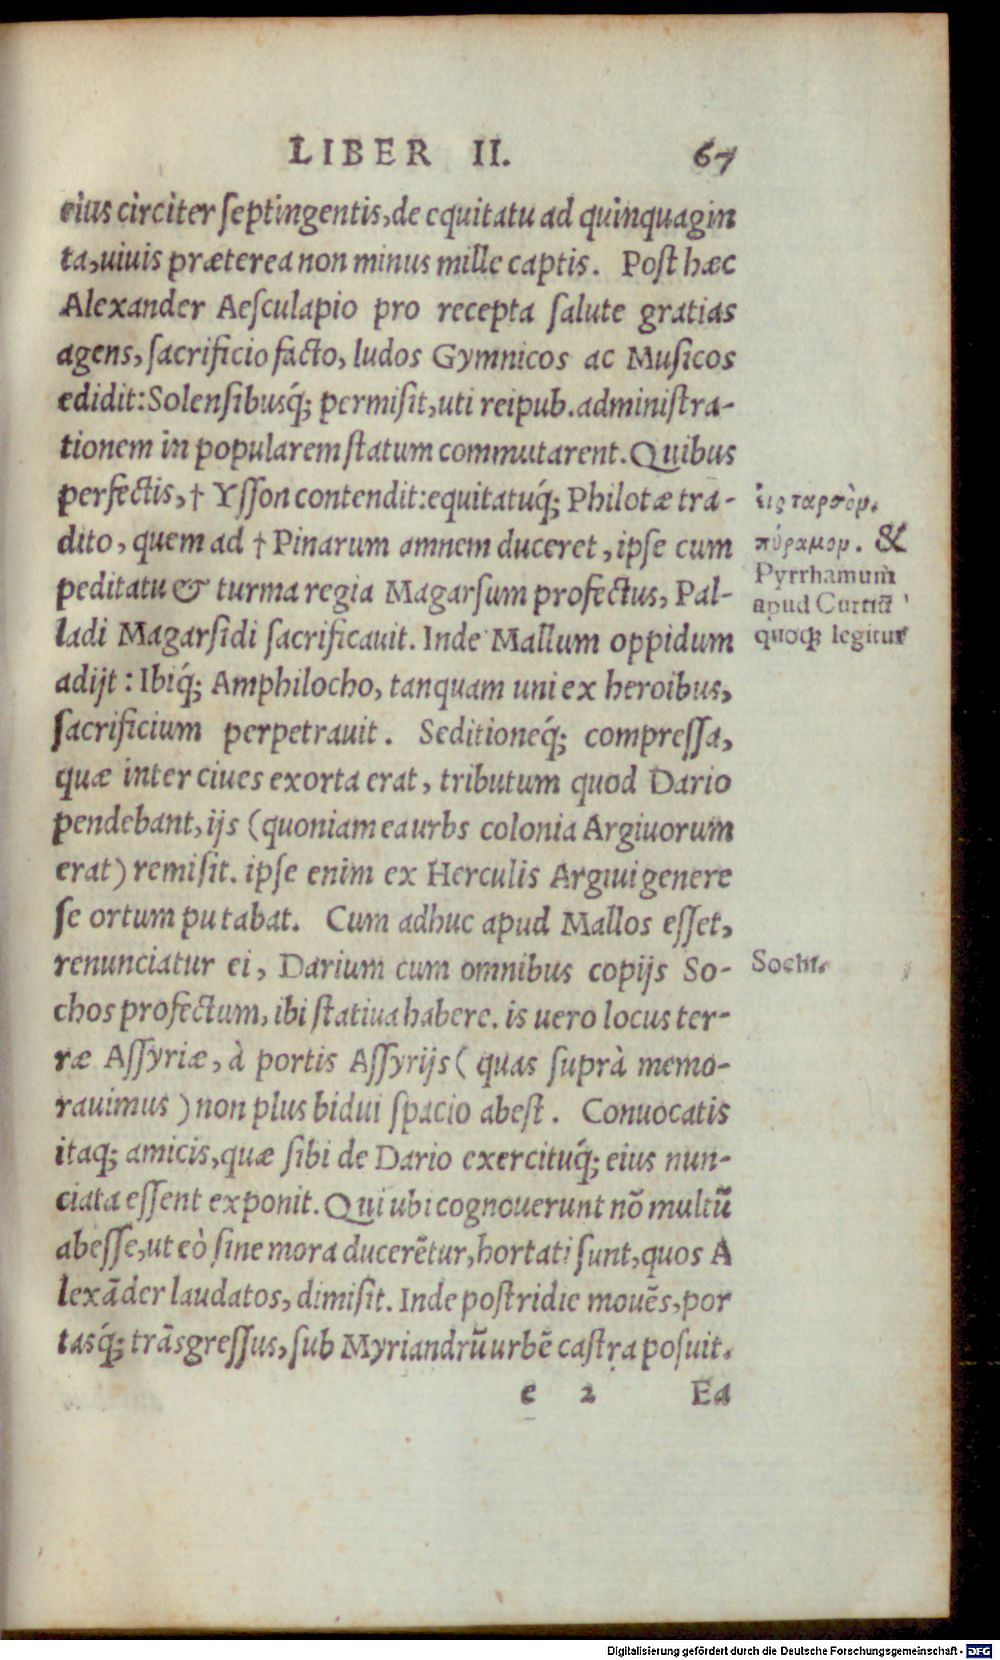 LIBER II. 67
eius circiter ſeptingentis, de equitatu ad quinquagin
ta, uiuis præterea non minus mille captis. Poſt hæc
Alexander Aeſculapio pro recepta ſalute gratias
agens, ſacrificio facto, ludos Gymnicos ac Muſicos
edidit: Solenſibusq́; permiſit, uti reipub. adminiſtra-
tionem in popularem ſtatum commutarent. Quibus
perfectis, † Yſſon contendit: equitatuq́; Philotæ tra-
dito, quem ad † Pinarum amnem duceret, ipſe cum
peditatu & turma regia Magarſum profectus, Pal-
ladi Magarſidi ſacrificauit. Inde Mallum oppidum
adijt: Ibiq́; Amphilocho, tanquam uni ex heroibus,
ſacrificium perpetrauit. Seditioneq́; compreſſa,
quæ inter ciues exorta erat, tributum quod Dario
pendebant, ijs (quoniam ea urbs colonia Argiuorum
erat) remiſit. ipſe enim ex Herculis Argiui genere
ſe ortum putabat. Cum adhuc apud Mallos eſſet,
renunciatur ei, Darium cum omnibus copijs So-
chos profectum, ibi ſtatiua habere. is uero locus ter-
ræ Aſſyriæ, à portis Aſſyrijs (quas ſuprà memo-
rauimus) non plus bidui ſpacio abeſt. Conuocatis
itaq; amicis, quæ ſibi de Dario exercituq́; eius nun-
ciata eſſent exponit. Qui ubi cognouerunt nõ multũ
abeſſe, ut eò ſine mora ducerẽtur, hortati ſunt, quos A
lexãder laudatos, dimiſit. Inde poſtridie mouẽs, por
tasq́; trãsgreſſus, ſub Myriandrũ urbẽ caſtra poſuit.
e 2 Ea
εἰς ταρσὸν.
πύραμον. &
Pyrrhamum
apud Curtiũ
quoq; legitur
Sochi.
Digitalisierung gefördert durch die Deutsche Forschungsgemeinschaft - DFG